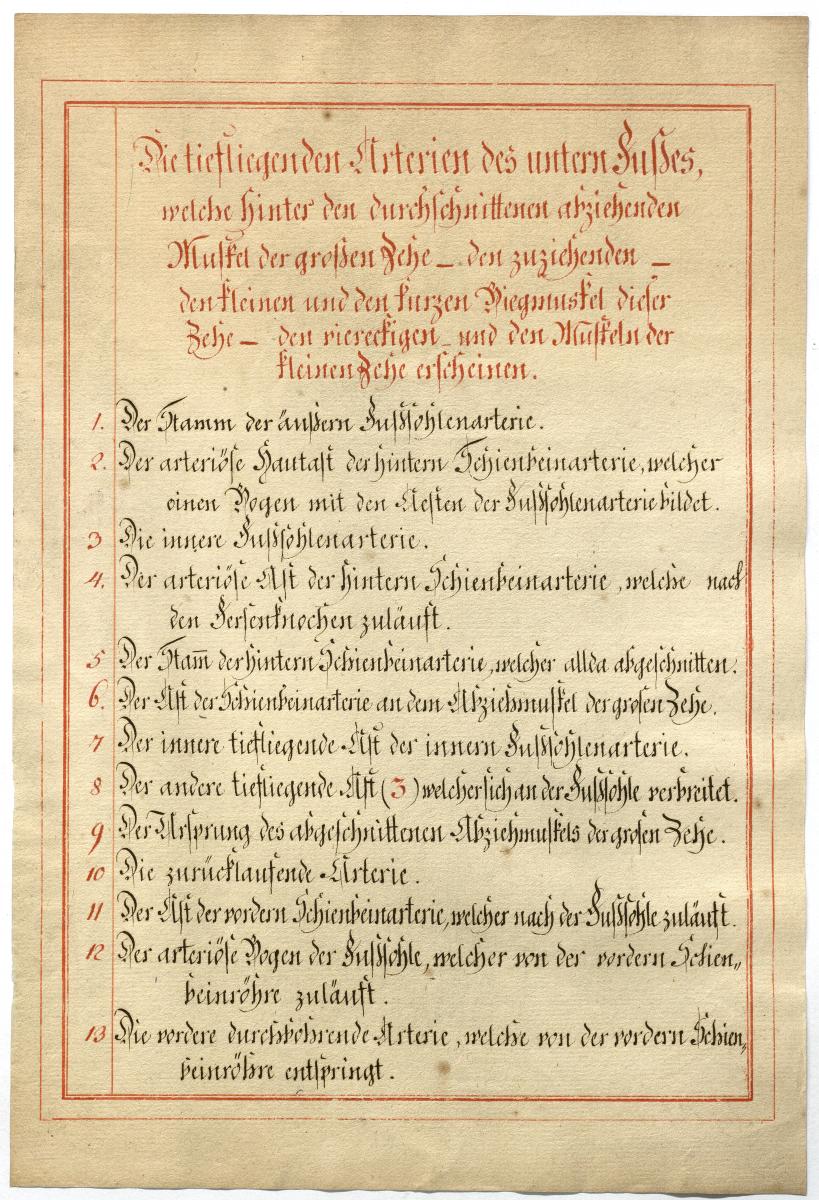 Die tiefliegenden Arterien des untern Fußes,
welche hinter den durchschnittenen abziehenden
Muskel der großen Zehe — den zuziehenden —
den kleinen und den kurzen Biegmuskel dieser
Zehe — den viereckigen — und den Muskeln der
kleinen Zehe erscheinen.
1. Der Stamm der äußern Fußsohlenarterie.
2. Der arteriöse Hautast der hintern Schienbeinarterie, welcher
einen Bogen mit den Aesten der Fußsohlenarterie bildet.
3 Die innere Fußsohlenarterie.
4. Der arteriöse Ast der hintern Schienbeinarterie, welche nach
den Fersenknochen zuläuft.
5 Der Stam̅ der hintern Schienbeinarterie, welcher allda abgeschnitten.
6. Der Ast der Schienbeinarterie an dem Abziehmuskel der grosen Zehe.
7 Der innere tiefliegende Ast der innern Fußsohlenarterie.
8 Der andere tiefliegende Ast (3) welcher sich an der Fußsohle verbreitet.
9 Der Ursprung des abgeschnittenen Abziehmuskels der grosen Zehe.
10 Die zurücklaufende Arterie.
11 Der Ast der vordern Schienbeinarterie, welcher nach der Fußsohle zuläuft.
12 Der arteriöse Bogen der Fußsohle, welcher von der vordern Schien„
beinröhre zuläuft.
13 Die vordere durchbohrende Arterie, welche von der vordern Schien„
beinröhre entspringt.